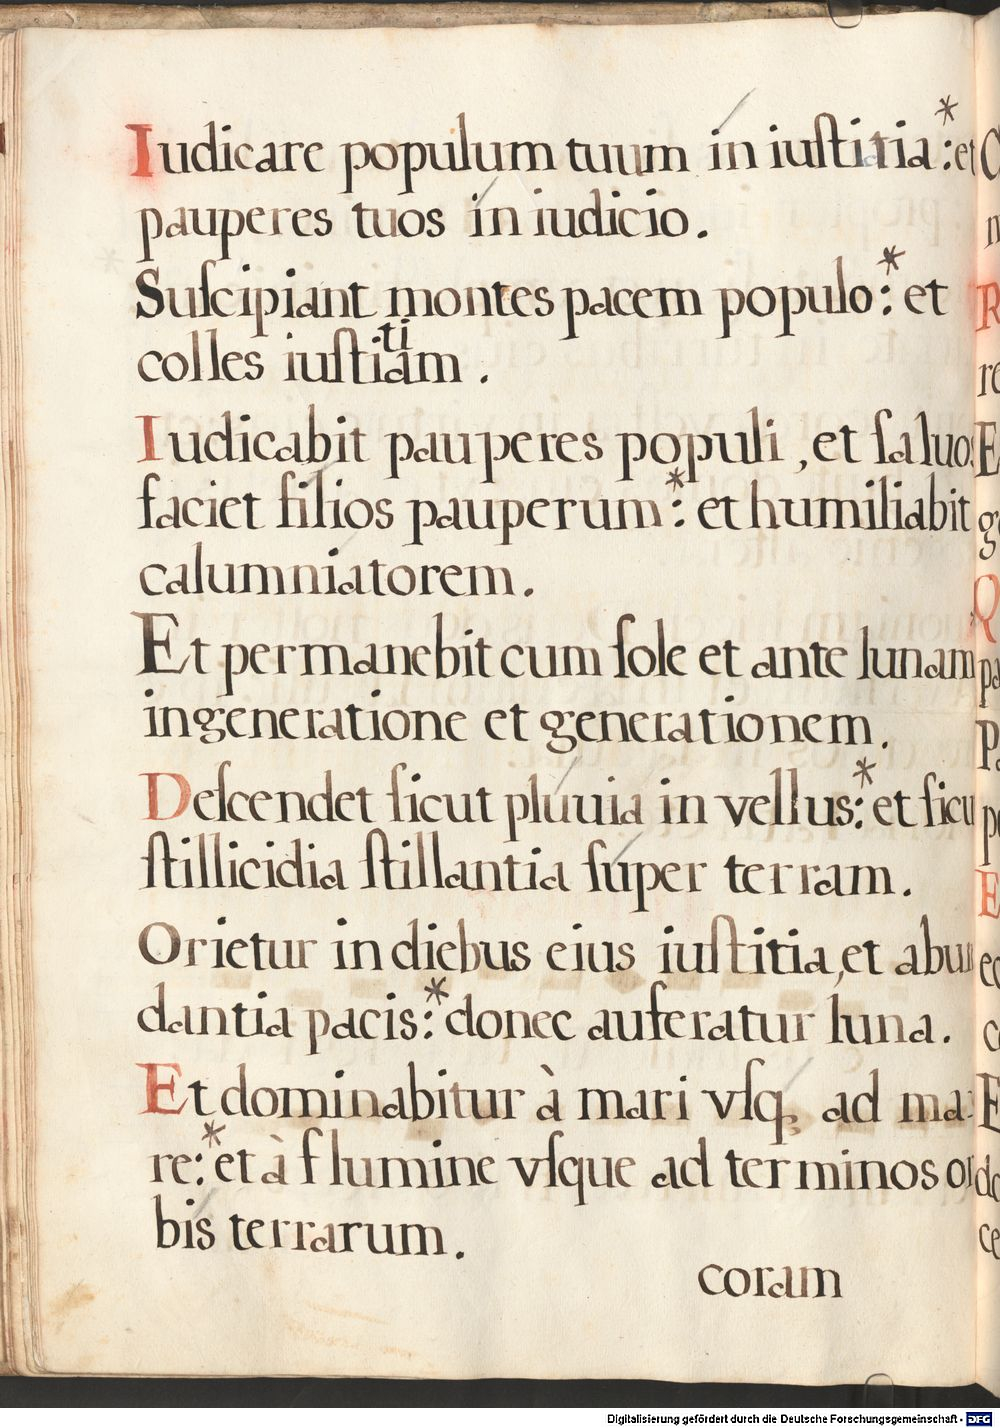 Iudicare populum tuum in iuſtitia:* et
pauperes tuos in iudicio.
Suſcipiant montes pacem populo:* et
colles iuſtitiam.
Iudicabit pauperes populi, et ſaluos
faciet filios pauperum:* et humiliabit
calumniatorem.
Et permanebit cum ſole et ante lunam
in generatione et generationem.
Deſcendet ſicut pluuia in vellus:* et ſicu
ſtillicidia ſtillantia ſuper terram.
Orietur in diebus eius iuſtitia, et abun
dantia pacis:* donec auferatur luna.
Et dominabitur à mari vſq; ad ma:
re:* et à flumine vſque ad terminos or
bis terrarum.
coram
Digitalisierung gefördert durch die Deutsche Forschungsgemeinschaft - DFG